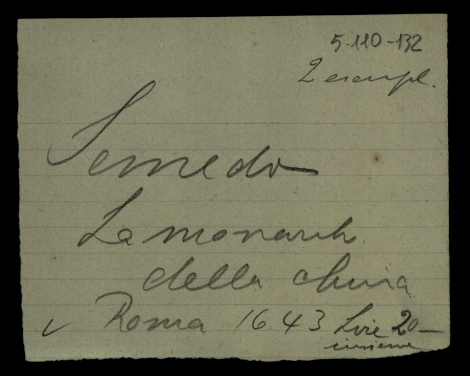 5-110-132
2 esempl.
Semedo
La monarch.
della China
✓ Roma 1643 Lire 20-
insieme